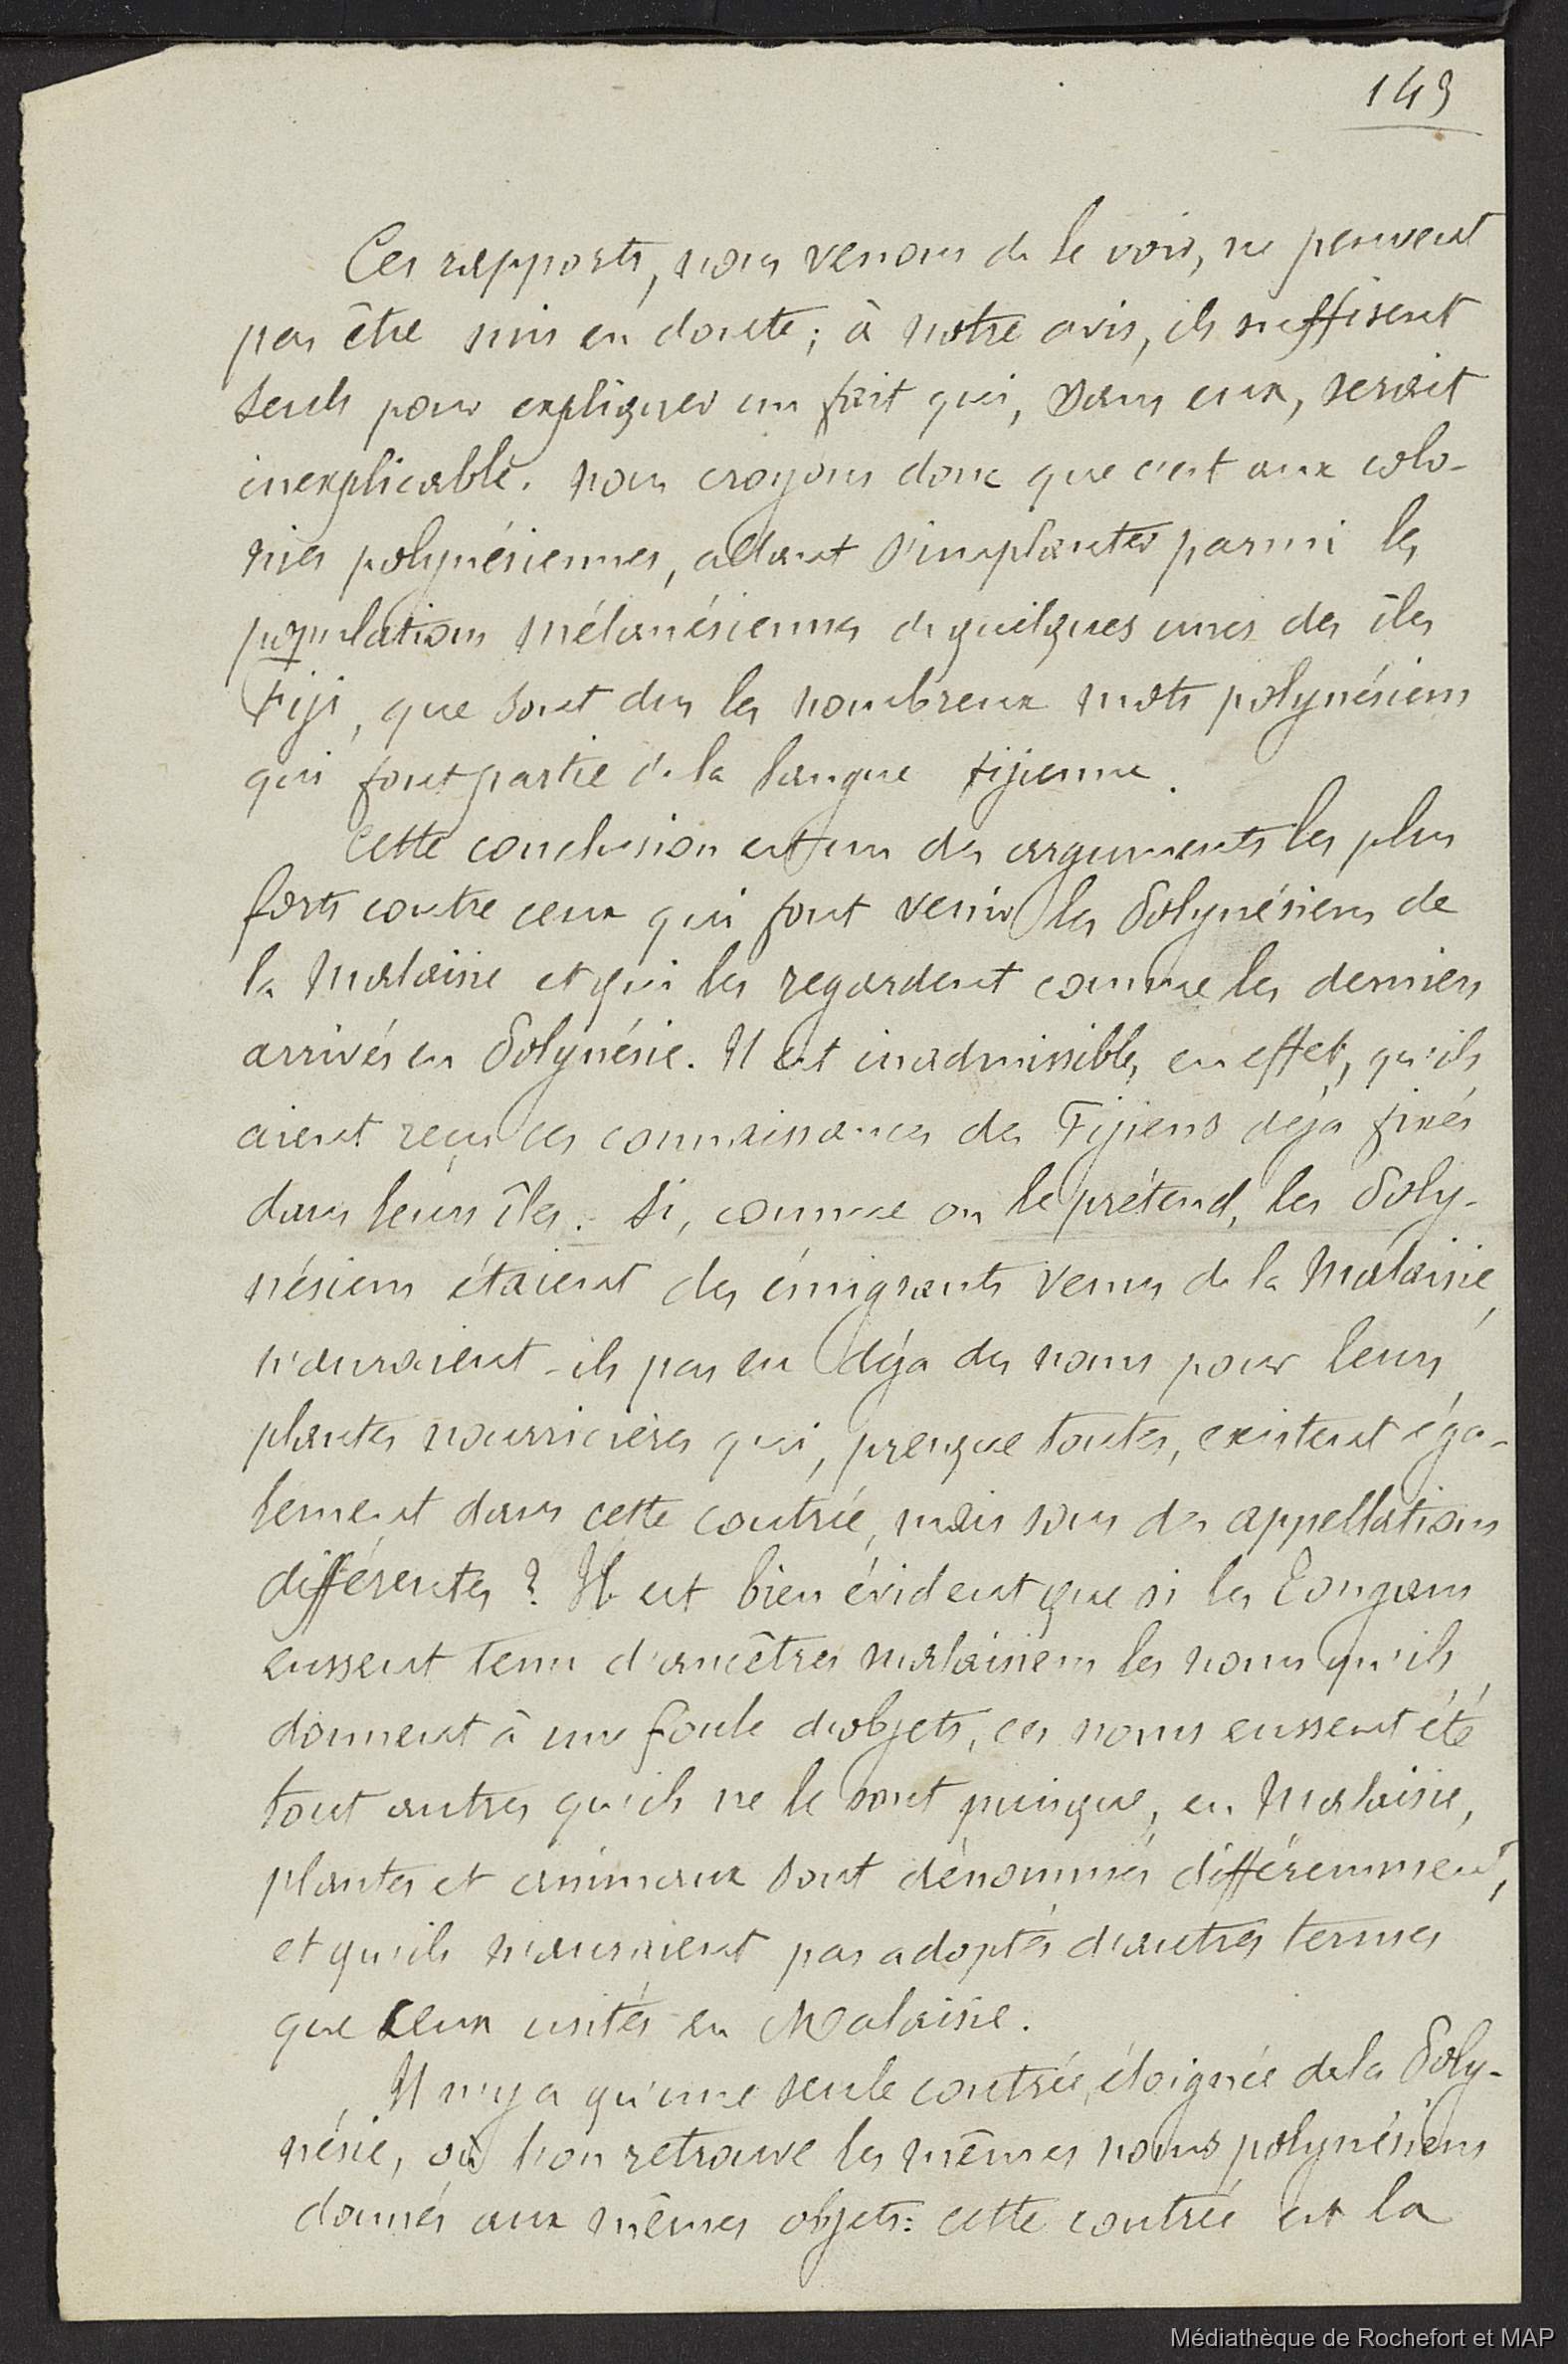 149
Ces rapports, nous venons de le voir, ne peuvent
pas être mis en doute; à notre avis, ils suffisent
seuls pour expliquer un fait qui, sans eux, serait
inexplicable. Nous croyons donc que c'est aux colo-
nies polynésiennes, allant s'implanter parmi les
populations mélanésiennes de quelques unes des îles
Fiji, que sont dus les nombreux mots polynésiens
qui font partie de la langue fijienne.
Cette conclusion est un des arguments les plus
forts contre ceux qui font venir les Polynésiens de
la Malaisie et qui les regardent comme les derniers
arrivés en Polynésie. Il est inadmissible, en effet, qu'ils
aient reçu ces connaissances des Fijiens déjà fixés
dans leurs îles. Si, comme on le prétend, les Poly-
nésiens étaient des émigrants venus de la Malaisie,
n'auraient-ils pas eu déjà des noms pour leurs
plantes nourricières qui, presque toutes, existent éga-
lement dans cette contrée, mais sous des appellations
différentes? Il est bien évident que si les Tongans
eussent tenu d'ancêtres malaisiens les noms qu'ils
donnent à une foule d'objets, ces noms eussent été
tout autres qu'ils ne le sont puisque, en Malaisie,
plantes et animaux sont dénommés différemment,
et qu'ils n'auraient pas adoptés d'autres termes
que ceux usités en Malaisie.
Il n'y a qu'une seule contrée, éloignée de la Poly-
nésie, où l'on retrouve les mêmes noms polynésiens
donnés aux mêmes objets: cette contrée est la
Médiathèque de Rochefort et MAP